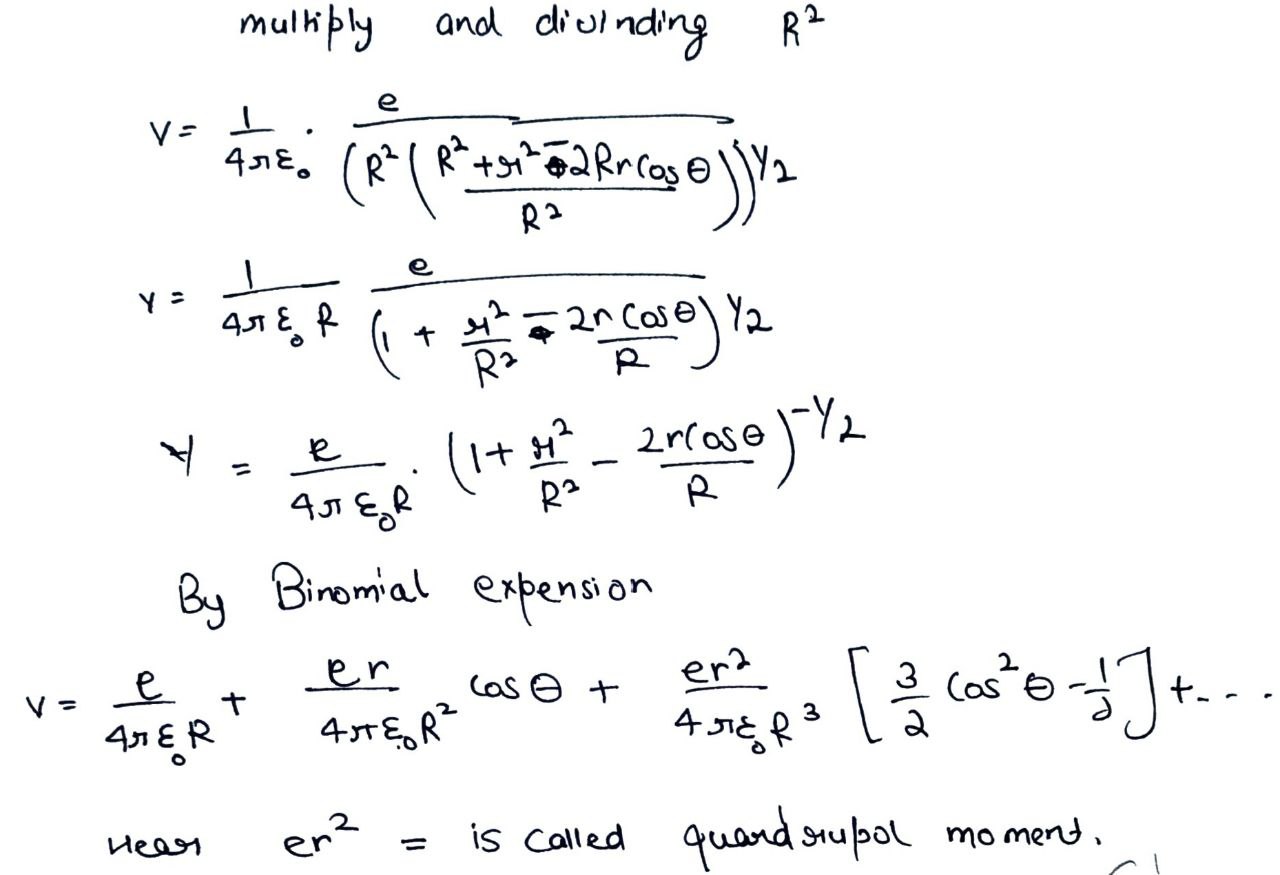 multiply and divinding R²
V = 1/4πε₀ · e/(R²(R²+r²-2Rr cosθ/R²))^1/2
V = 1/4πε₀R e/(1 + r²/R² - 2r cosθ/R)^1/2
V = e/4πε₀R · (1 + r²/R² - 2r cosθ/R)^-1/2
By Binomial expension
V = e/4πε₀R + er/4πε₀R² cosθ + er²/4πε₀R³ [3/2 cos²θ - 1/2] + - - -
Hear er² = is called quardrupol moment.